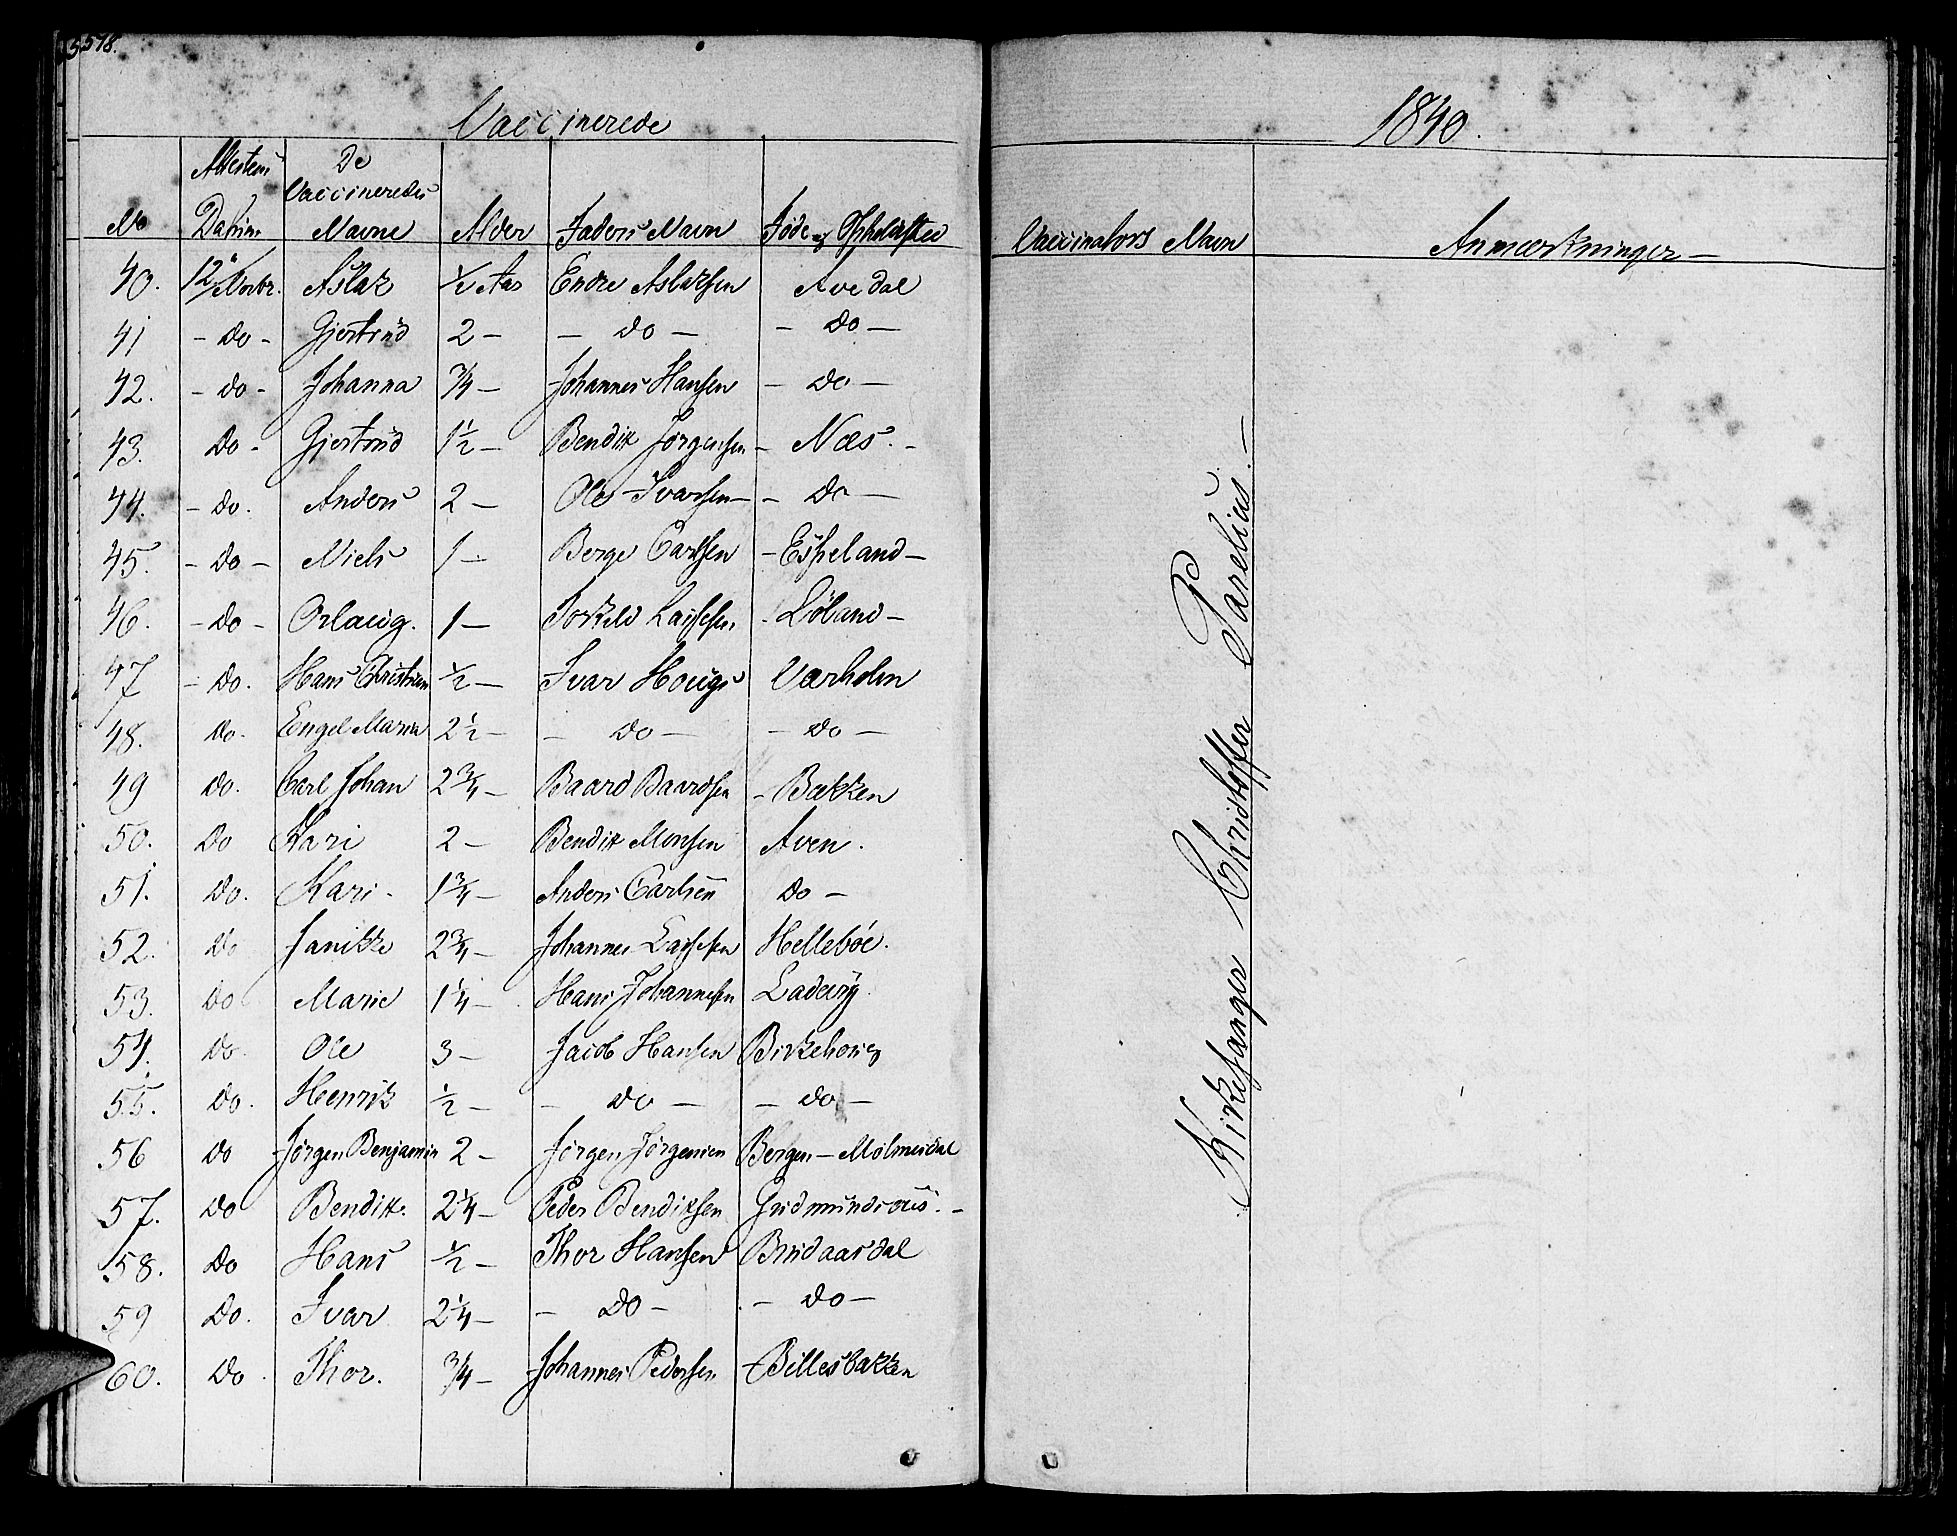 598.
Vaccinerede
1840.
No | Attestens Datum | De Vaccineredes Navne | Alder | Faders Navn | Føde og Opholdssted | Vaccinators Navn | Anmærkninger —
40. | 12 Novbr. | Aslak | ½ Aar | Endre Aslaksen | Avedal
41 | - do - | Gjertrud | 2 - | - do - | - do -
42. | - do - | Johanna | ¾ - | Johannes Hansen | - do -
43. | Do - | Gjertrud | 1½ - | Bendik Jørgensen - | Næs. -
44. | - do. | Anders | 2 - | Ole Ivarsen - | - do -
45. | - do - | Niels | 1 - | Berge Carlsen | - Espeland -
46. | - do - | Orlaug. | 1 - | Torkild Lassesen | - Löland -
47 | - do. | Hans Christian | ½ - | Ivar Hougs | Værholm
48. | do. | Engel Maria | 2½ - | - do - | - do -
49 | do. | Carl Johan | 2¾ - | Baard Baardsen | - Bakken
50. | Do | Kari | 2 - | Bendik Monsen | Aven.
51. | Do. | Kari - | 1¾ - | Anders Carlsen | do -
52. | Do | Janikke | 2¾ - | Johannes Lassesen | Hellebøe.
53. | Do | Marie | 1¼ - | Hans Johannesen | Ladevig.
54. | Do. | Ole | 3 - | Jacob Hansen | Birkehoug
55. | Do. | Henrik | ½ - | - do - | - do -
56 | Do | Jørgen Benjamin | 2 - | Jørgen Jørgensen | Bergen - Mølmesdal
57. | Do | Bendik. | 2¼ - | Peder Bendiksen | Gudmundsøus. -
58. | Do | Hans | ½ - | Thor Hansen | Bindaasdal
59 | Do. | Ivar | 2¼ - | - Do - | - do -
60. | Do. | Thor. | ¾ - | Johannes Pedersen | Billesbakken
Kirkesanger Christoffer Parelius. -